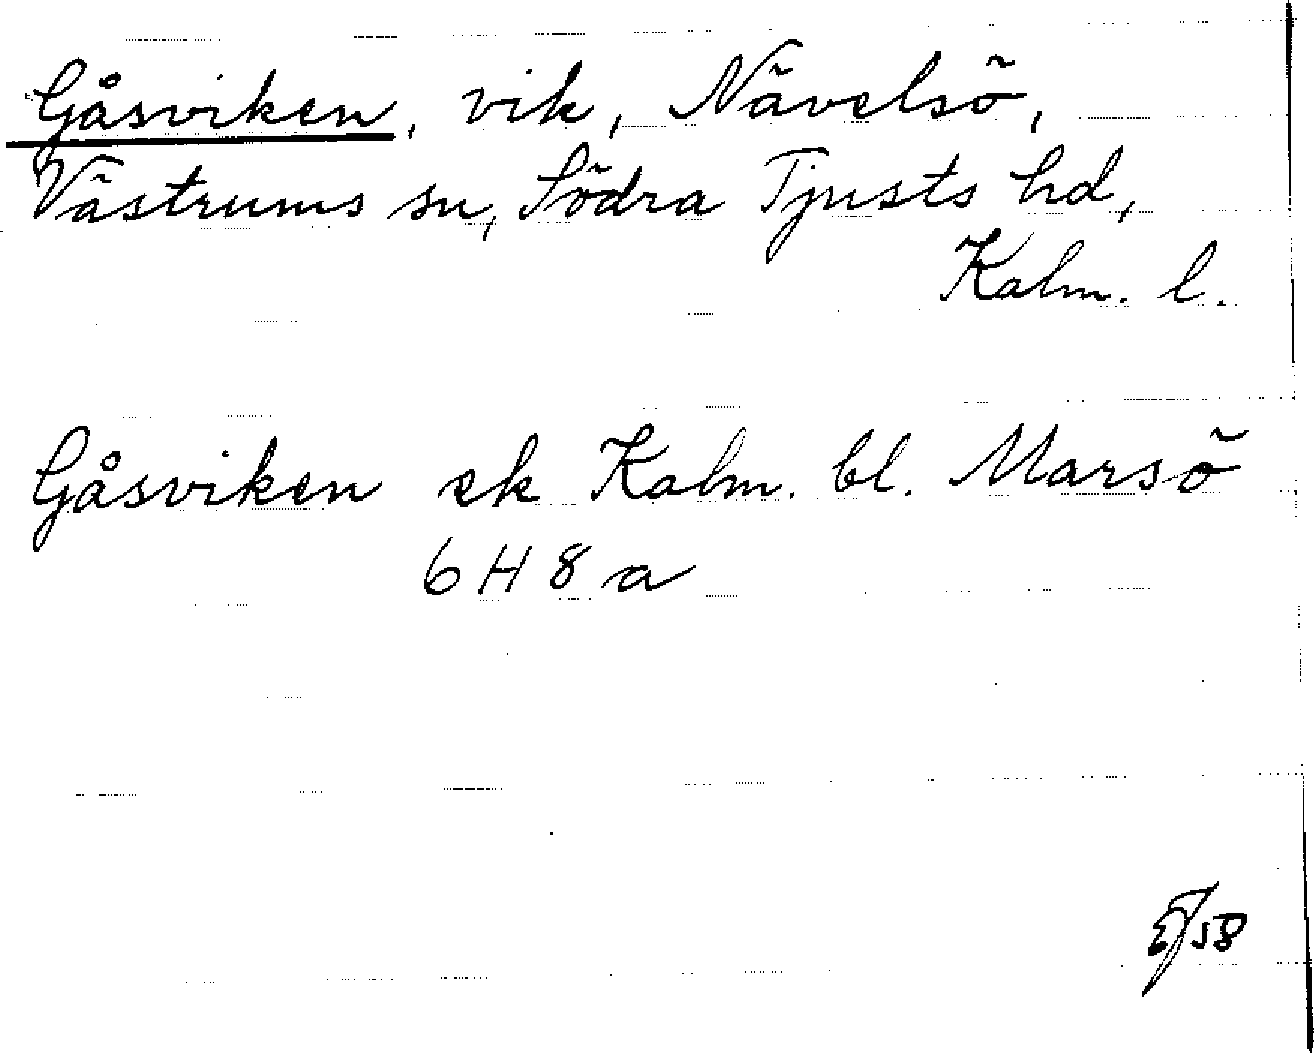 Gåsviken, vik, Nävelsö,
Västrums sn, Södra Tjusts hd,
Kalm. l.
Gåsviken ek Kalm. bl. Marsö
6 H 8 a
/58